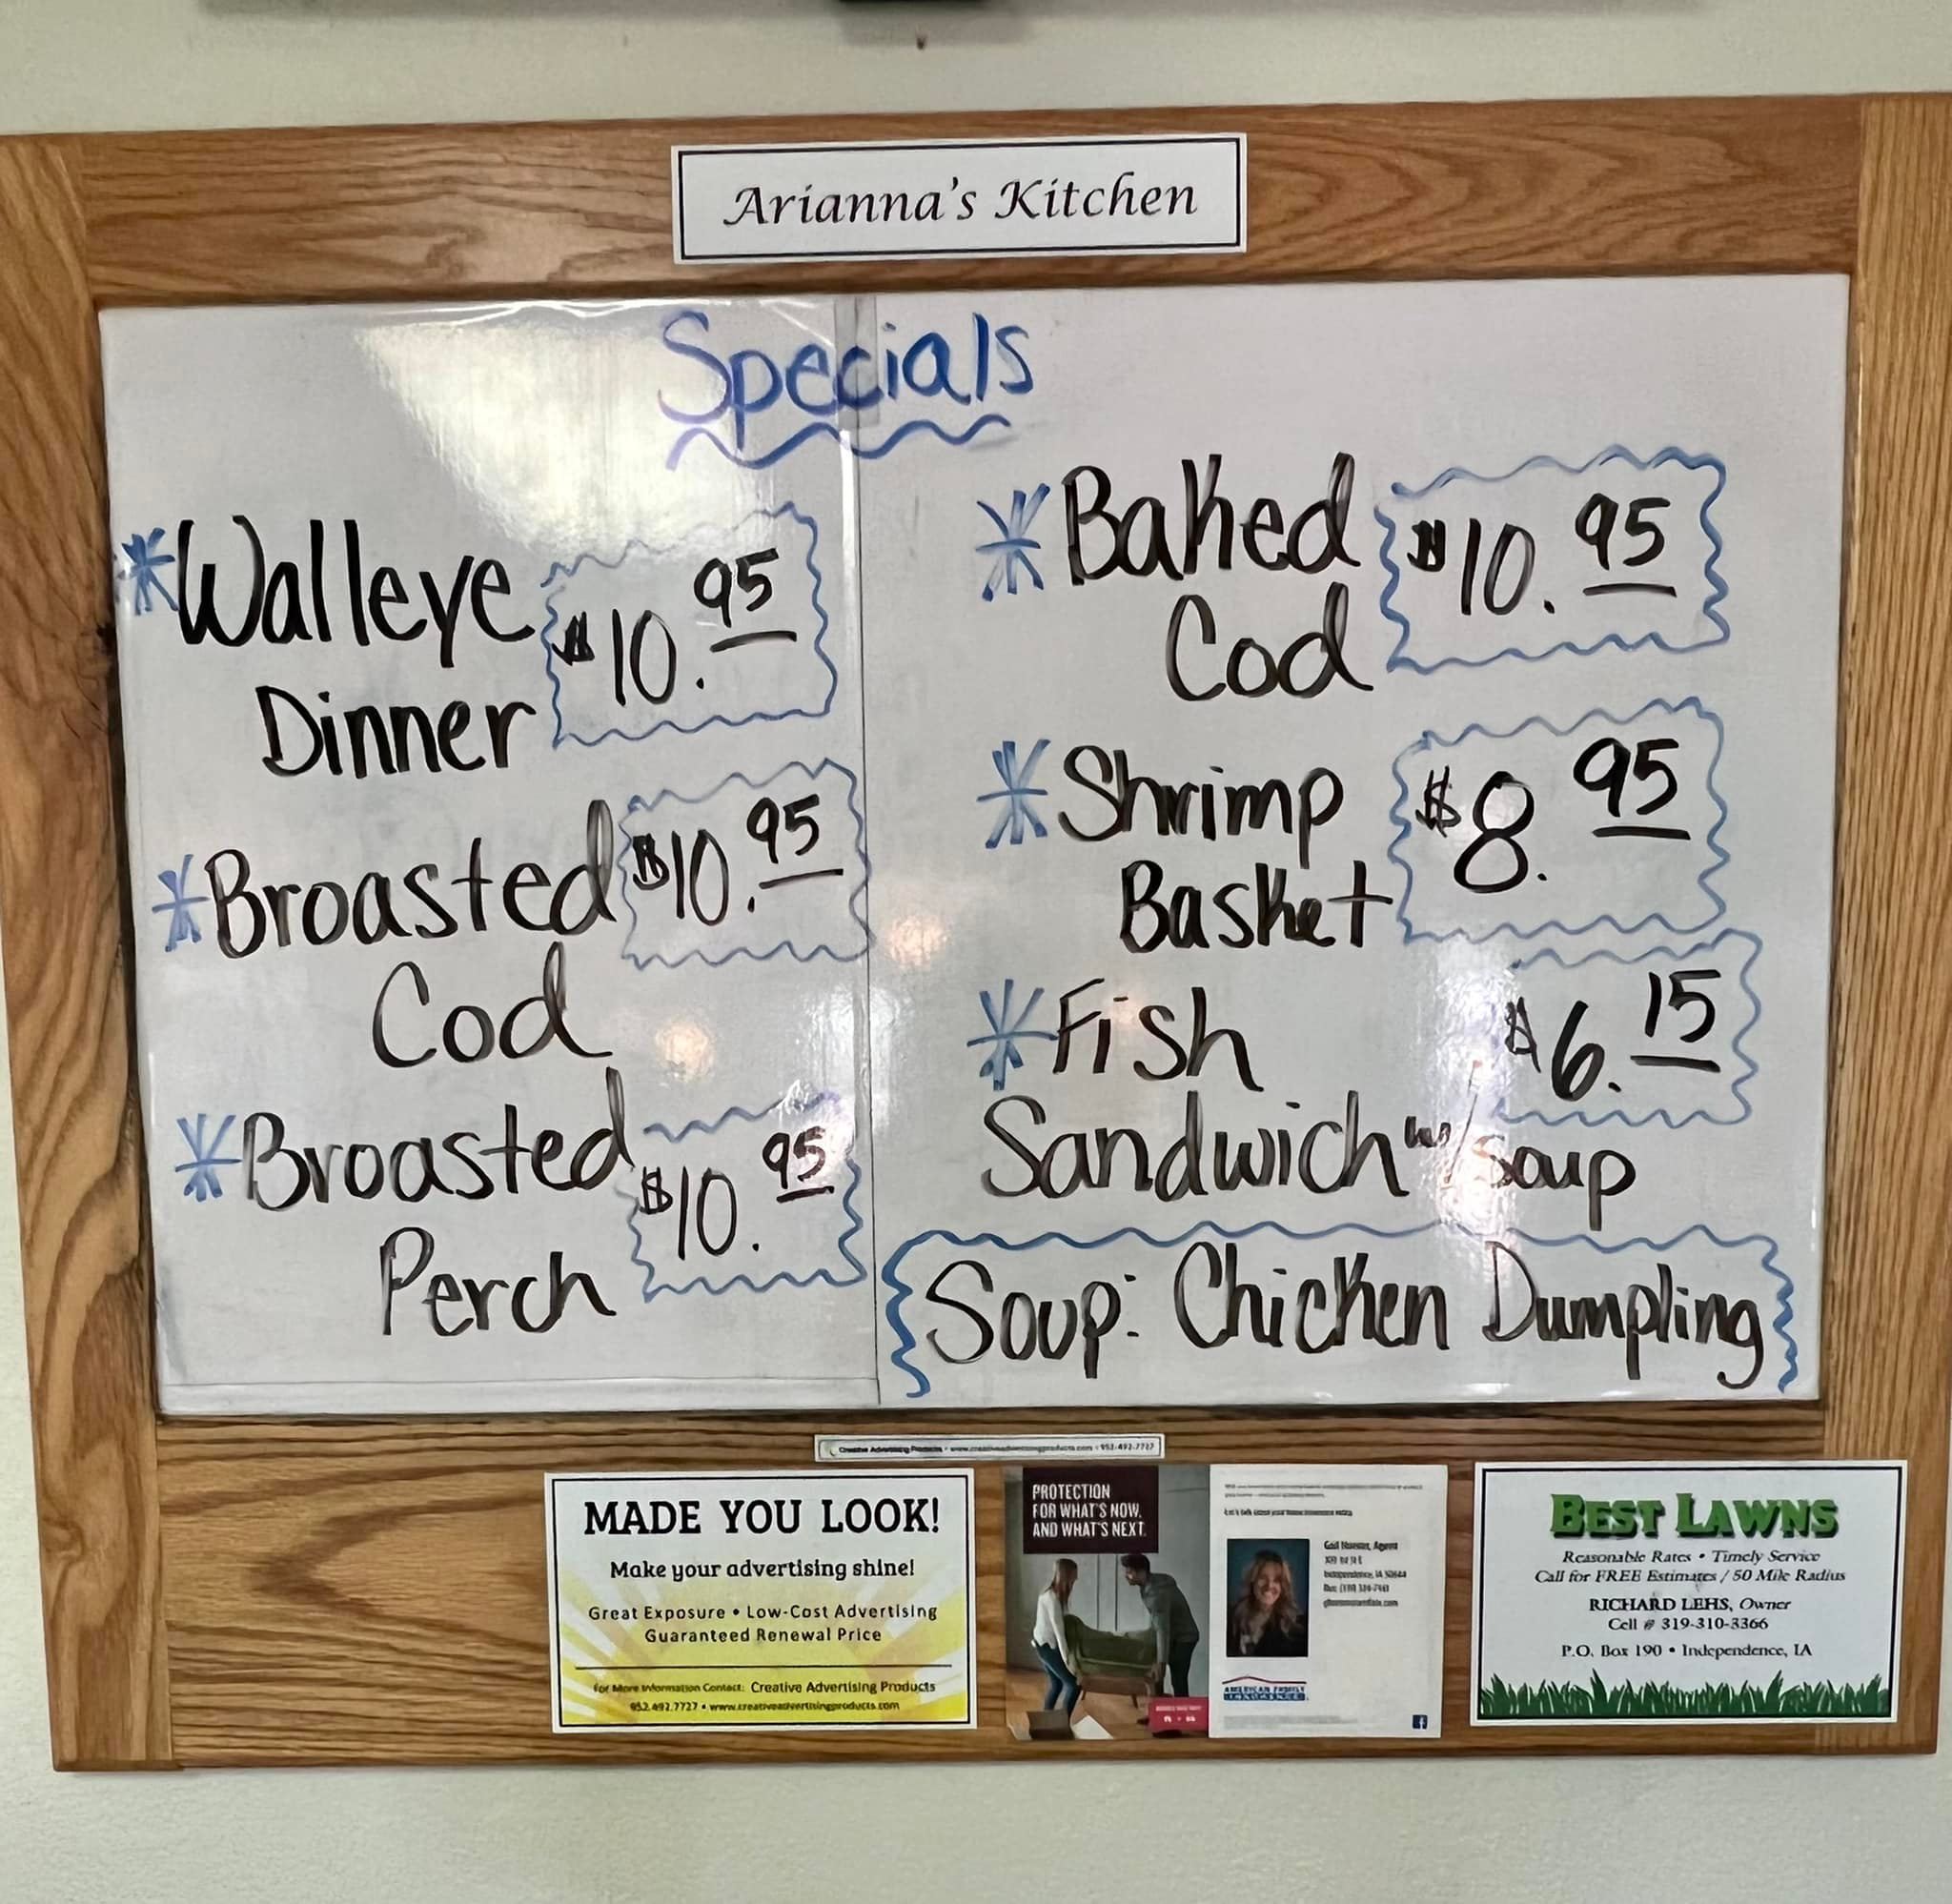 Arianna's Kitchen
Specials
*Walleye $10.95
Dinner
*Broasted $10.95
Cod
*Broasted $10.95
Perch
*Baked $10.95
Cod
*Shrimp $8.95
Basket
*Fish $6.15
Sandwich w/soup
Soup: Chicken Dumpling
Creative Advertising Products • www.creativeadvertisingproducts.com • 952-492-7727
MADE YOU LOOK!
Make your advertising shine!
Great Exposure • Low-Cost Advertising
Guaranteed Renewal Price
For More Information Contact: Creative Advertising Products
952.492.7727 • www.creativeadvertisingproducts.com
PROTECTION
FOR WHAT'S NOW.
AND WHAT'S NEXT.
Agent
Independence, IA
AMERICAN FAMILY
INSURANCE
BEST LAWNS
Reasonable Rates • Timely Service
Call for FREE Estimates / 50 Mile Radius
RICHARD LEHS, Owner
Cell # 319-310-3366
P.O. Box 190 • Independence, IA